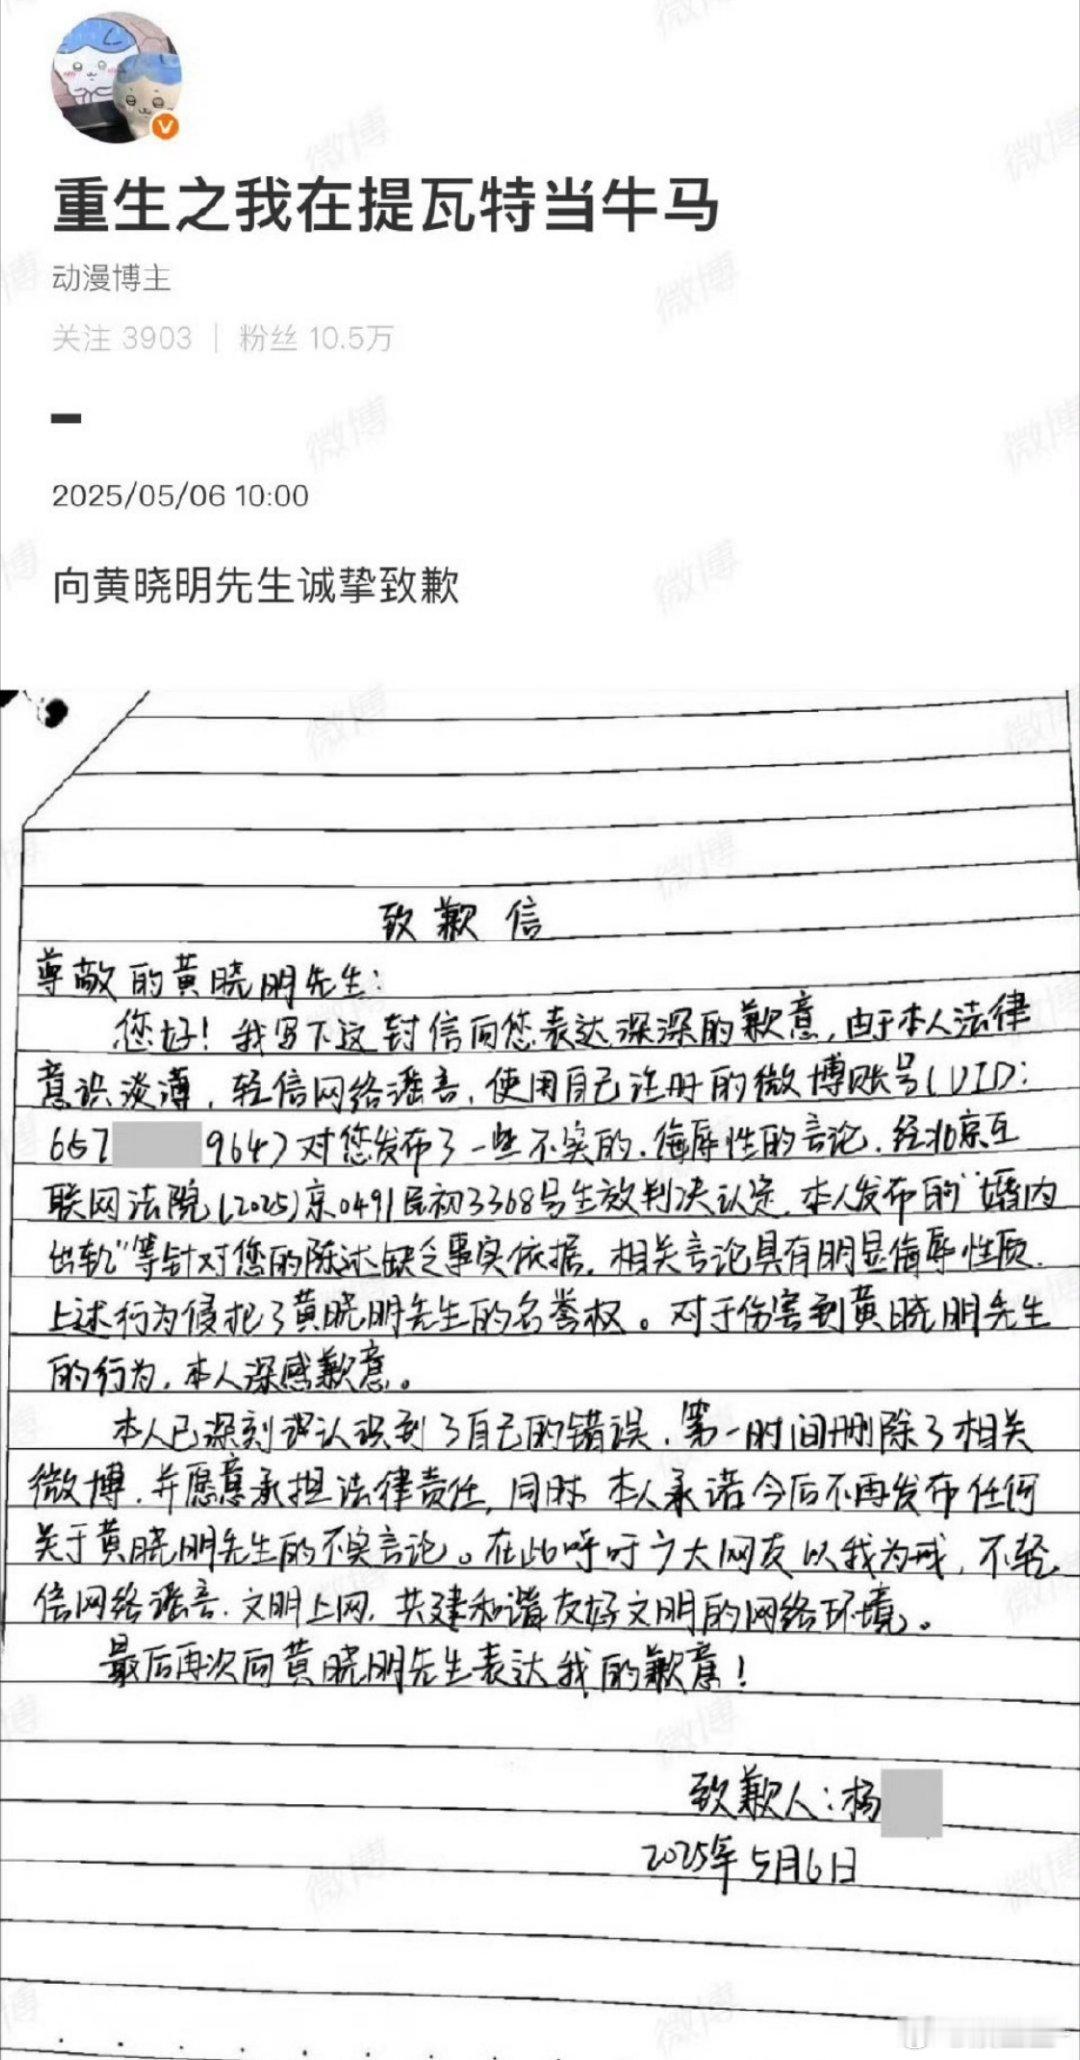 重生之我在提瓦特当牛马
动漫博主
关注 3903 | 粉丝 10.5万
2025/05/06 10:00
向黄晓明先生诚挚致歉
致歉信
尊敬的黄晓明先生：
您好！我写下这封信向您表达深深的歉意，由于本人法律
意识淡薄，轻信网络谣言，使用自己注册的微博账号（UID：
657 964）对您发布了一些不实的、侮辱性的言论，经北京互
联网法院（2025）京0491民初3368号生效判决认定，本人发布的“婚内
出轨”等针对您的陈述缺乏事实依据，相关言论具有明显侮辱性质，
上述行为侵犯了黄晓明先生的名誉权。对于伤害到黄晓明先生
的行为，本人深感歉意。
本人已深刻认识到了自己的错误，第一时间删除了相关
微博，并愿意承担法律责任，同时，本人承诺今后不再发布任何
关于黄晓明先生的不实言论。在此呼吁广大网友以我为戒，不轻
信网络谣言，文明上网，共建和谐友好文明的网络环境。
最后再次向黄晓明先生表达我的歉意！
致歉人：杨
2025年5月6日
微博